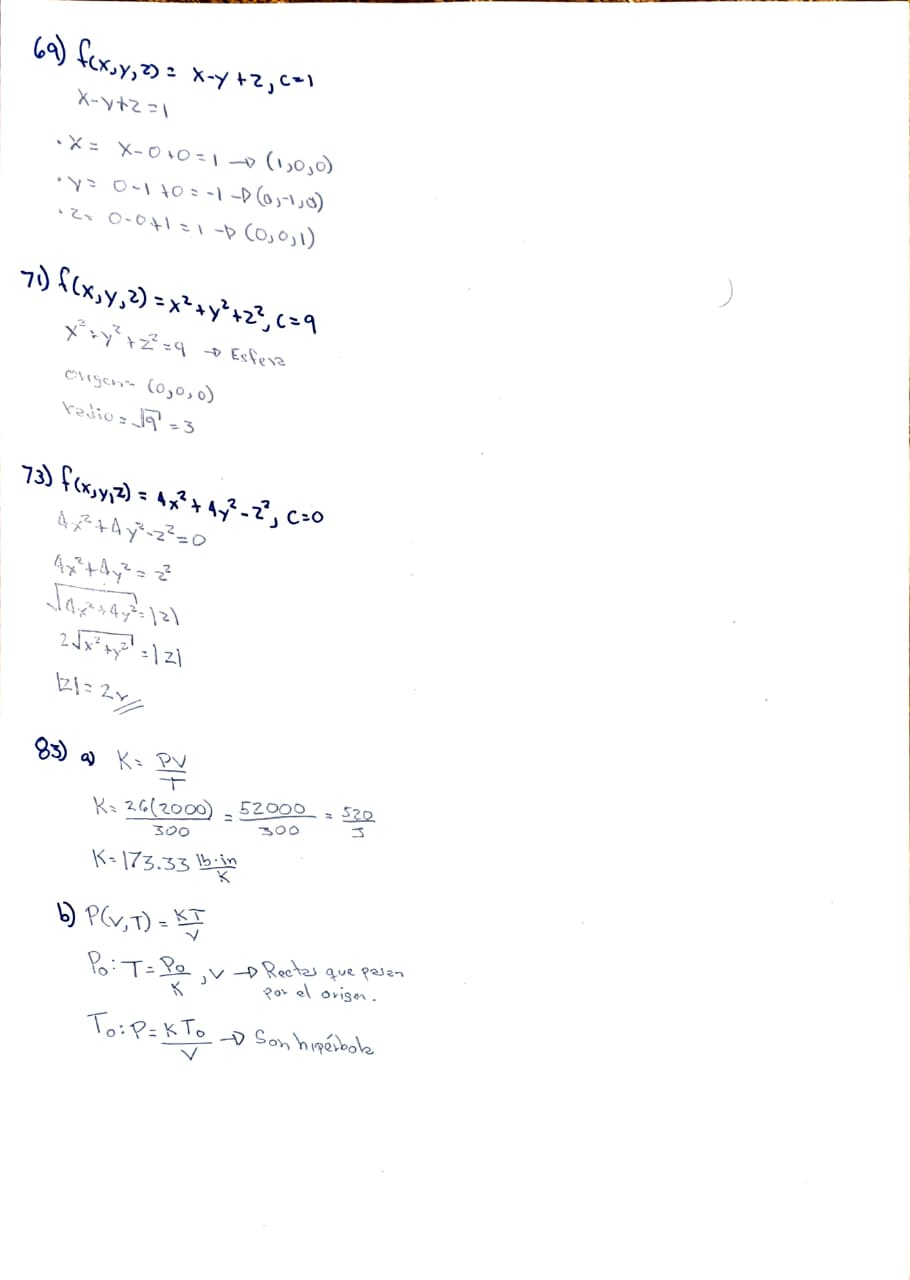 69) f(x,y,z) = x-y+z, c=1
x-y+z=1
·x= x-0+0=1 → (1,0,0)
·y= 0-1+0=-1 → (0,-1,0)
·z= 0-0+1=1 → (0,0,1)
71) f(x,y,z) = x²+y²+z², c=9
x²+y²+z²=9 → Esfera
origen= (0,0,0)
radio = √9 = 3
73) f(x,y,z) = 4x²+4y²-z², c=0
4x²+4y²-z²=0
4x²+4y²=z²
√4x²+4y²=|z|
2√x²+y² =|z|
|z|=2r
83) a) K= PV/T
K= 26(2000)/300 = 52000/300 = 520/3
K=173.33 lb·in/K
b) P(V,T) = KT/V
P₀: T= P₀/K , V → Rectas que pasan
por el origen.
T₀: P= KT₀/V → Son hipérbola